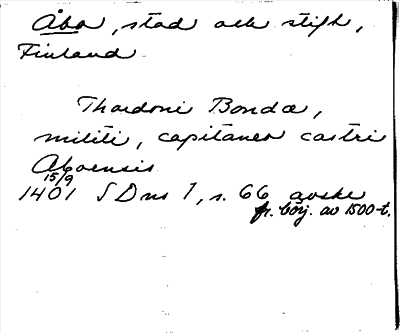 Åbo, stad och stift,
Finland
Thordoni Bondæ,
militi, capitaneo castri
Aboensis
15/9
1401 SDns 1, s. 66 avskr
fr. börj. av 1500-t.